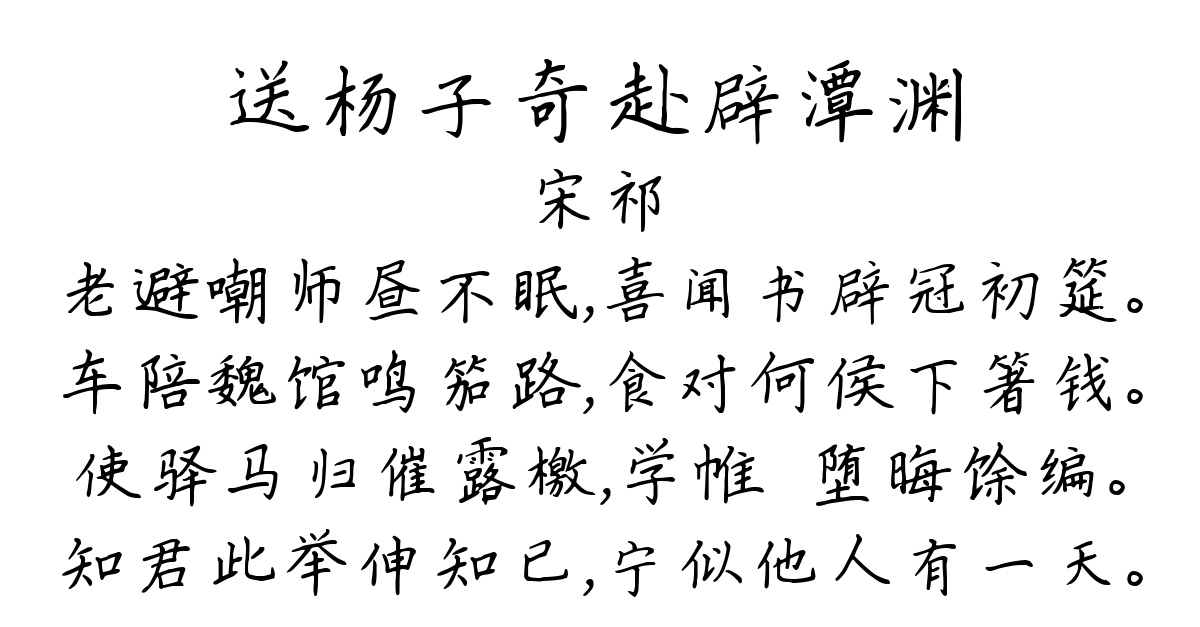 送杨子奇赴辟潭渊
宋祁
老避嘲师昼不眠,喜闻书辟冠初筵。
车陪魏馆鸣笳路,食对何侯下箸钱。
使驿马归催露檄,学帷 堕晦馀编。
知君此举伸知已,宁似他人有一天。